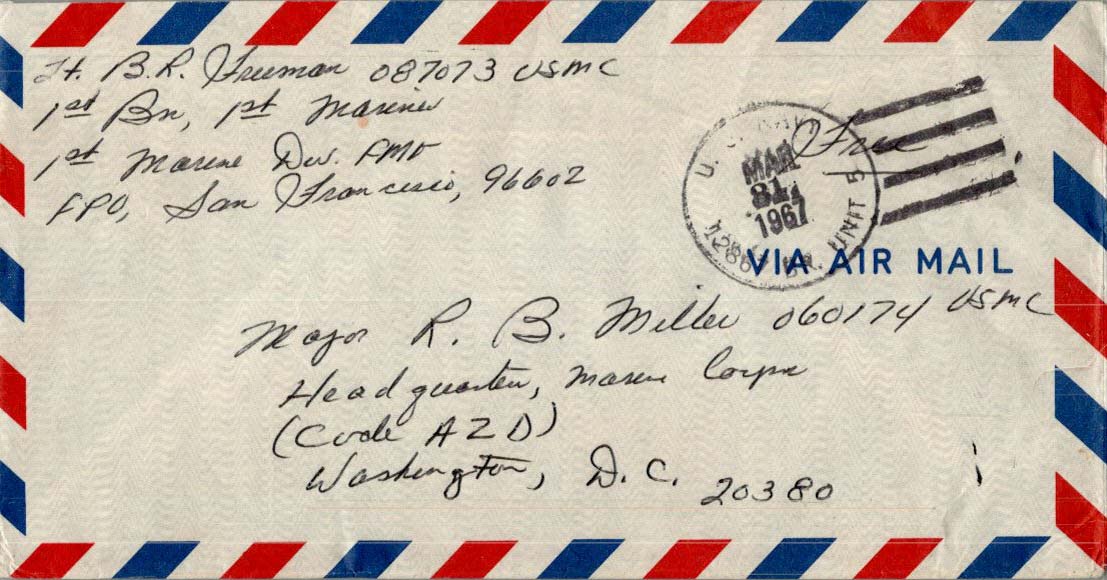 Lt. B.R. Freeman 087073 USMC
1st Bn, 1st Marines
1st Marine Div. FMF
FPO, San Francisco, 96602
U.S. NAVY
MAR
31
1967
12867 BR. UNIT 5
Free
VIA AIR MAIL
Major R. B. Miller 060174 USMC
Headquarters, Marine Corps
(Code A2D)
Washington, D.C. 20380